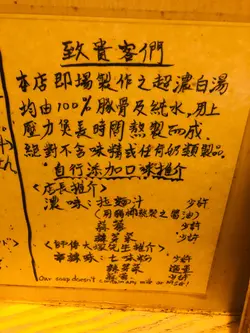 致貴客們
本店即場製作之超濃白湯
均由100%豚骨及純水,用上
壓力煲長時間熬製而成.
絕對不含味精或任何奶類製品.
自行添加口味推介
<店長推介>
濃味:拉麵汁 少許
蒜蓉 少許
辣芽菜 少許
辛辣味:七味粉 少許
辣芽菜 適量
蒜蓉 少許
Our soup doesn't contain any milk or MSG!!